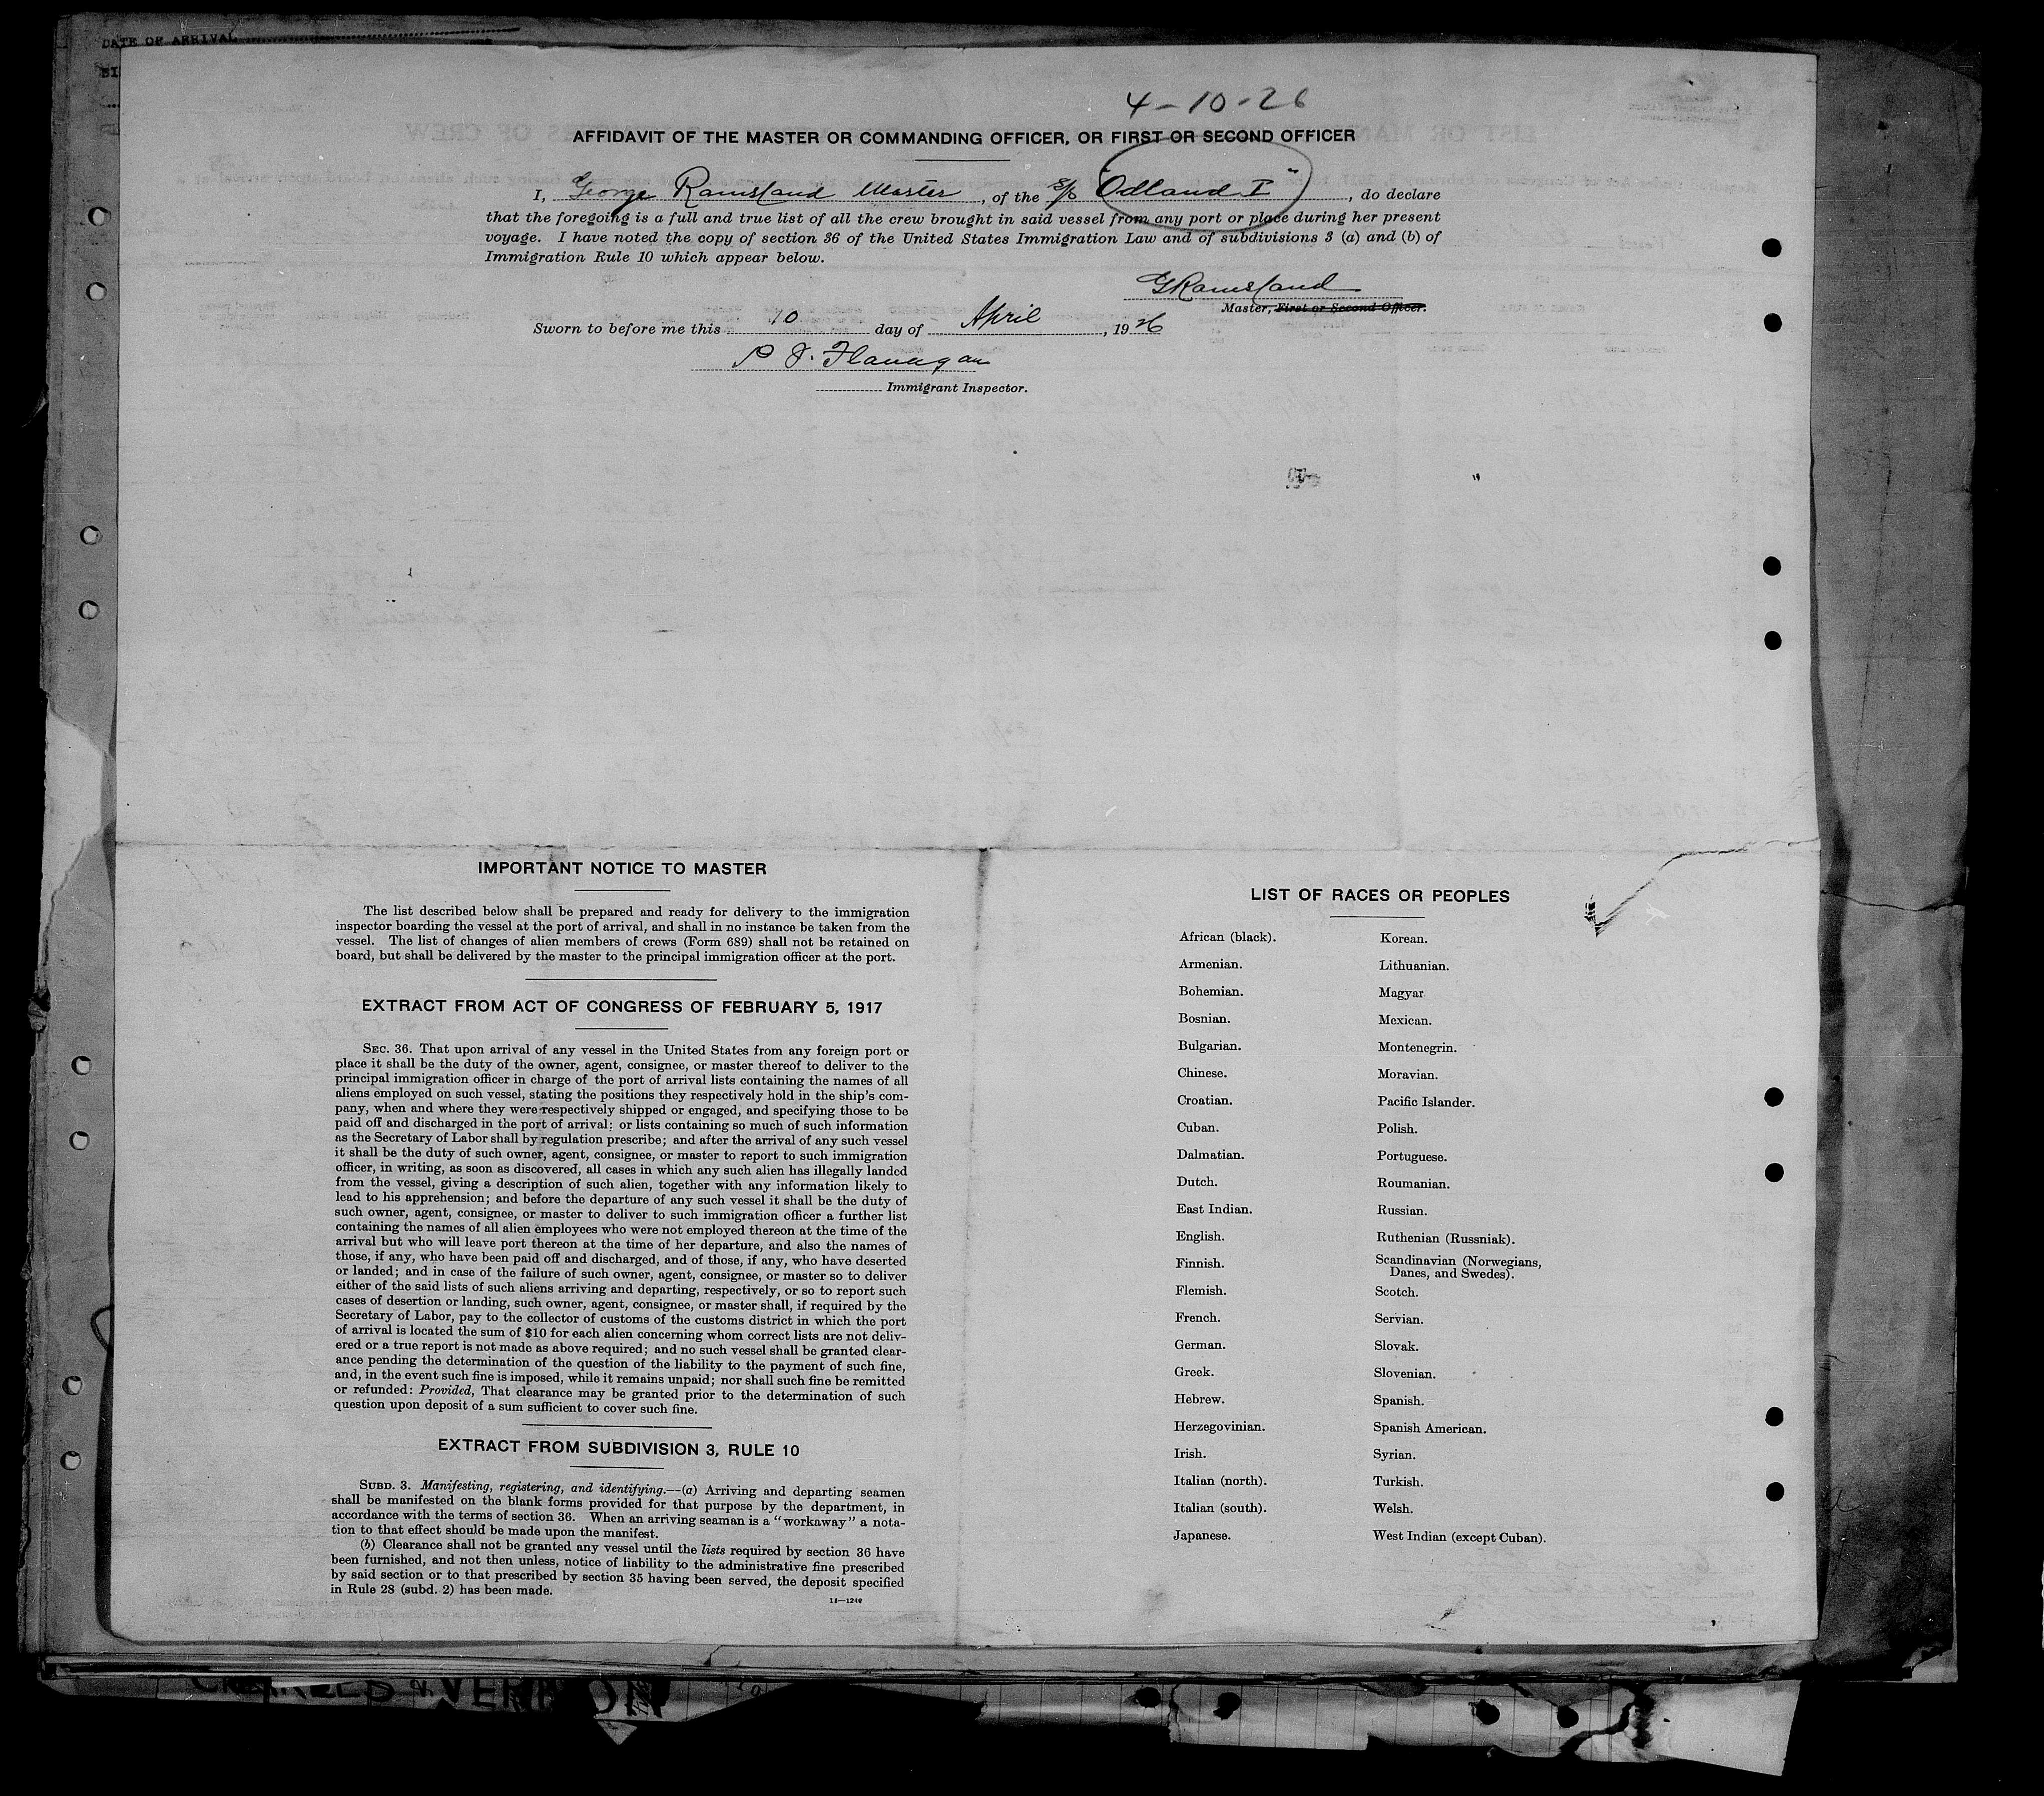 DATE OF ARRIVAL
4-10-26
AFFIDAVIT OF THE MASTER OR COMMANDING OFFICER, OR FIRST OR SECOND OFFICER
I, George Ramsland Master, of the S/S "Odland I", do declare
that the foregoing is a full and true list of all the crew brought in said vessel from any port or place during her present
voyage. I have noted the copy of section 36 of the United States Immigration Law and of subdivisions 3 (a) and (b) of
Immigration Rule 10 which appear below.
GRamsland
Master, First or Second Officer.
Sworn to before me this 10 day of April, 1926
P J. Flanagan
Immigrant Inspector.
IMPORTANT NOTICE TO MASTER
The list described below shall be prepared and ready for delivery to the immigration
inspector boarding the vessel at the port of arrival, and shall in no instance be taken from the
vessel. The list of changes of alien members of crews (Form 689) shall not be retained on
board, but shall be delivered by the master to the principal immigration officer at the port.
EXTRACT FROM ACT OF CONGRESS OF FEBRUARY 5, 1917
SEC. 36. That upon arrival of any vessel in the United States from any foreign port or
place it shall be the duty of the owner, agent, consignee, or master thereof to deliver to the
principal immigration officer in charge of the port of arrival lists containing the names of all
aliens employed on such vessel, stating the positions they respectively hold in the ship's com-
pany, when and where they were respectively shipped or engaged, and specifying those to be
paid off and discharged in the port of arrival; or lists containing so much of such information
as the Secretary of Labor shall by regulation prescribe; and after the arrival of any such vessel
it shall be the duty of such owner, agent, consignee, or master to report to such immigration
officer, in writing, as soon as discovered, all cases in which any such alien has illegally landed
from the vessel, giving a description of such alien, together with any information likely to
lead to his apprehension; and before the departure of any such vessel it shall be the duty of
such owner, agent, consignee, or master to deliver to such immigration officer a further list
containing the names of all alien employees who were not employed thereon at the time of the
arrival but who will leave port thereon at the time of her departure, and also the names of
those, if any, who have been paid off and discharged, and of those, if any, who have deserted
or landed; and in case of the failure of such owner, agent, consignee, or master so to deliver
either of the said lists of such aliens arriving and departing, respectively, or so to report such
cases of desertion or landing, such owner, agent, consignee, or master shall, if required by the
Secretary of Labor, pay to the collector of customs of the customs district in which the port
of arrival is located the sum of $10 for each alien concerning whom correct lists are not deliv-
ered or a true report is not made as above required; and no such vessel shall be granted clear-
ance pending the determination of the question of the liability to the payment of such fine,
and, in the event such fine is imposed, while it remains unpaid; nor shall such fine be remitted
or refunded: Provided, That clearance may be granted prior to the determination of such
question upon deposit of a sum sufficient to cover such fine.
EXTRACT FROM SUBDIVISION 3, RULE 10
SUBD. 3. Manifesting, registering, and identifying.—(a) Arriving and departing seamen
shall be manifested on the blank forms provided for that purpose by the department, in
accordance with the terms of section 36. When an arriving seaman is a "workaway" a nota-
tion to that effect should be made upon the manifest.
(b) Clearance shall not be granted any vessel until the lists required by section 36 have
been furnished, and not then unless, notice of liability to the administrative fine prescribed
by said section or to that prescribed by section 35 having been served, the deposit specified
in Rule 28 (subd. 2) has been made.
14—1240
LIST OF RACES OR PEOPLES
African (black).
Armenian.
Bohemian.
Bosnian.
Bulgarian.
Chinese.
Croatian.
Cuban.
Dalmatian.
Dutch.
East Indian.
English.
Finnish.
Flemish.
French.
German.
Greek.
Hebrew.
Herzegovinian.
Irish.
Italian (north).
Italian (south).
Japanese.
Korean.
Lithuanian.
Magyar
Mexican.
Montenegrin.
Moravian.
Pacific Islander.
Polish.
Portuguese.
Roumanian.
Russian.
Ruthenian (Russniak).
Scandinavian (Norwegians,
Danes, and Swedes).
Scotch.
Servian.
Slovak.
Slovenian.
Spanish.
Spanish American.
Syrian.
Turkish.
Welsh.
West Indian (except Cuban).